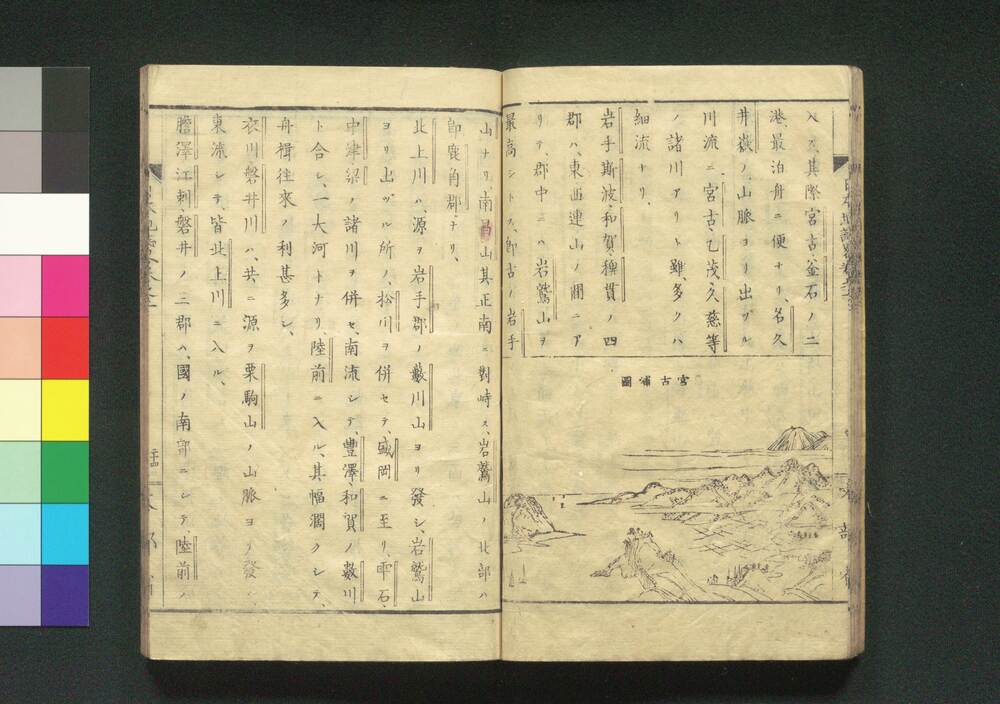 入ス、其際宮古、釜石ノ二
港、最泊舟ニ便ナリ、名久
井嶽ノ山脈ヨリ出ヅル
川流ニ、宮古、乙茂、久慈等
ノ諸川アリト雖、多クハ
細流ナリ、
岩手、斯波、和賀、稗貫ノ四
郡ハ、東西連山ノ間ニア
リテ、郡中ニハ岩鷲山ヲ
最高シトス、即古ノ岩手
宮古浦圖
山ナリ、南昌山其正南ニ對峙ス、岩鷲山ノ北部ハ
即鹿角郡ナリ、
北上川ハ、源ヲ岩手郡ノ藪川山ヨリ發シ、岩鷲山
ヨリ出ヅル所ノ松川ヲ併セテ、盛岡ニ至リ、雫石、
中津、簗ノ諸川ヲ併セ、南流シテ、豐澤、和賀ノ數川
ト合シ、一大河トナリ、陸前ニ入ル、其幅濶クシテ、
舟楫往來ノ利甚多シ、
衣川、磐井川ハ、共ニ源ヲ栗駒山ノ山脈ヨリ發シ、
東流シテ、皆北上川ニ入ル、
膽澤、江刺、磐井ノ三郡ハ、國ノ南部ニシテ、陸前ノ